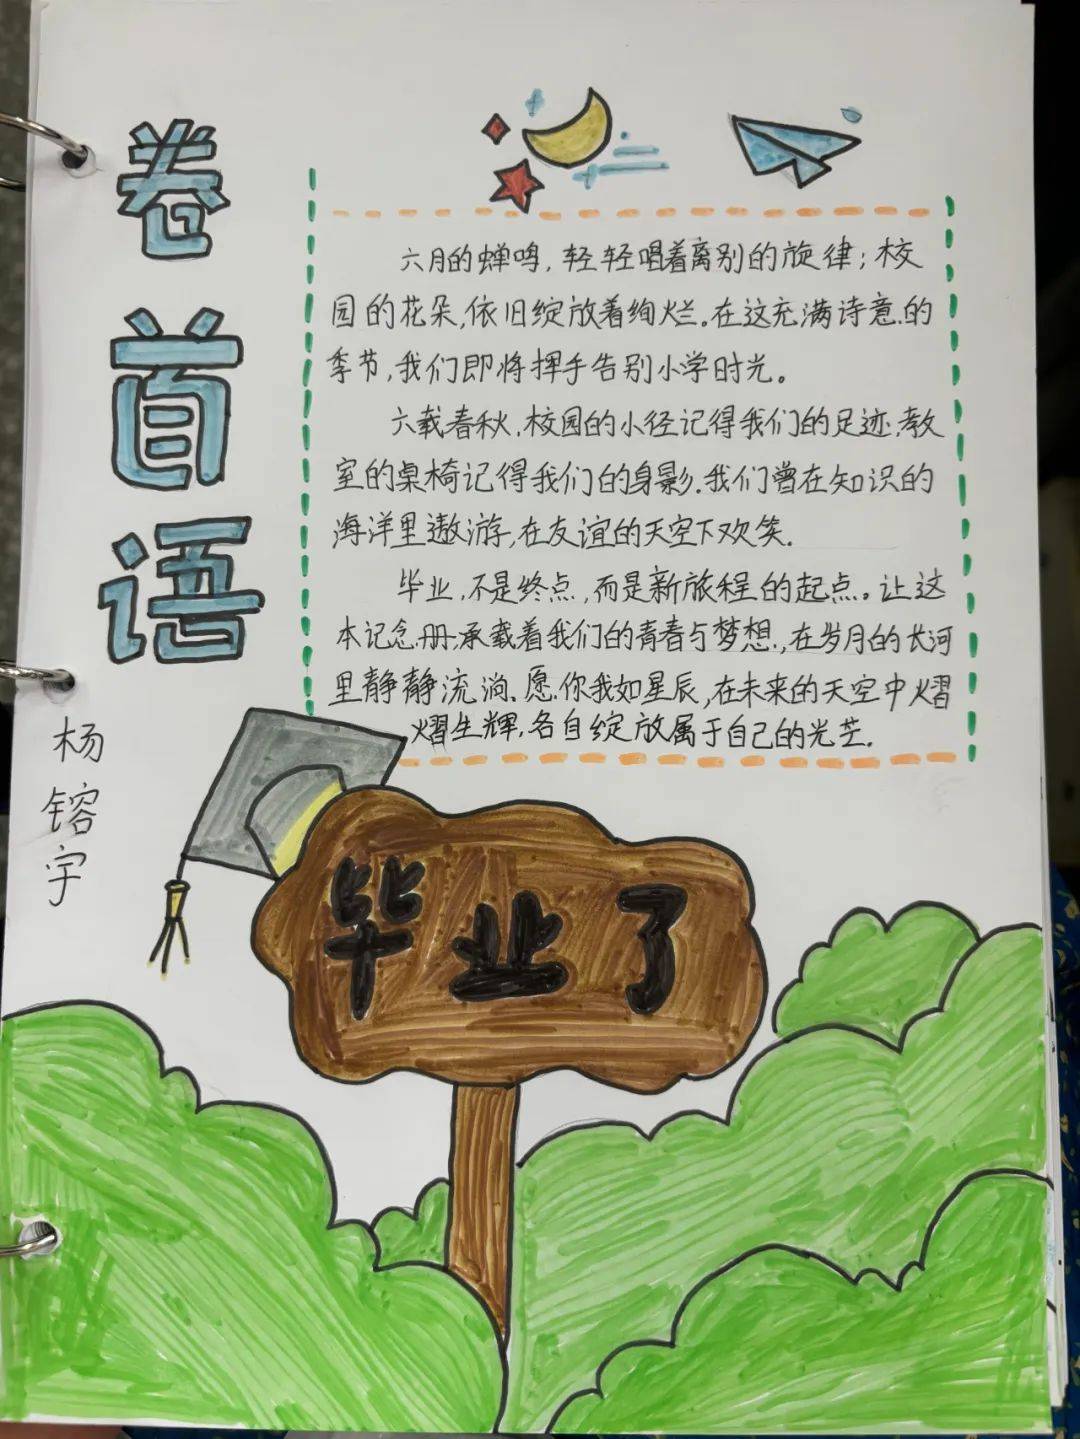 卷首语
六月的蝉鸣,轻轻唱着离别的旋律;校
园的花朵,依旧绽放着绚烂.在这充满诗意.的
季节,我们即将挥手告别小学时光。
六载春秋.校园的小径记得我们的足迹.教
室的桌椅记得我们的身影.我们曾在知识的
海洋里遨游,在友谊的天空下欢笑.
毕业,不是终点,而是新旅程的起点。让这
本纪念.册,承载着我们的青春与梦想.,在岁月的长河
里静静流淌.愿.你我如星辰,在未来的天空中熠
熠生辉,各自绽放属于自己的光芒.
杨镕宇
毕业了